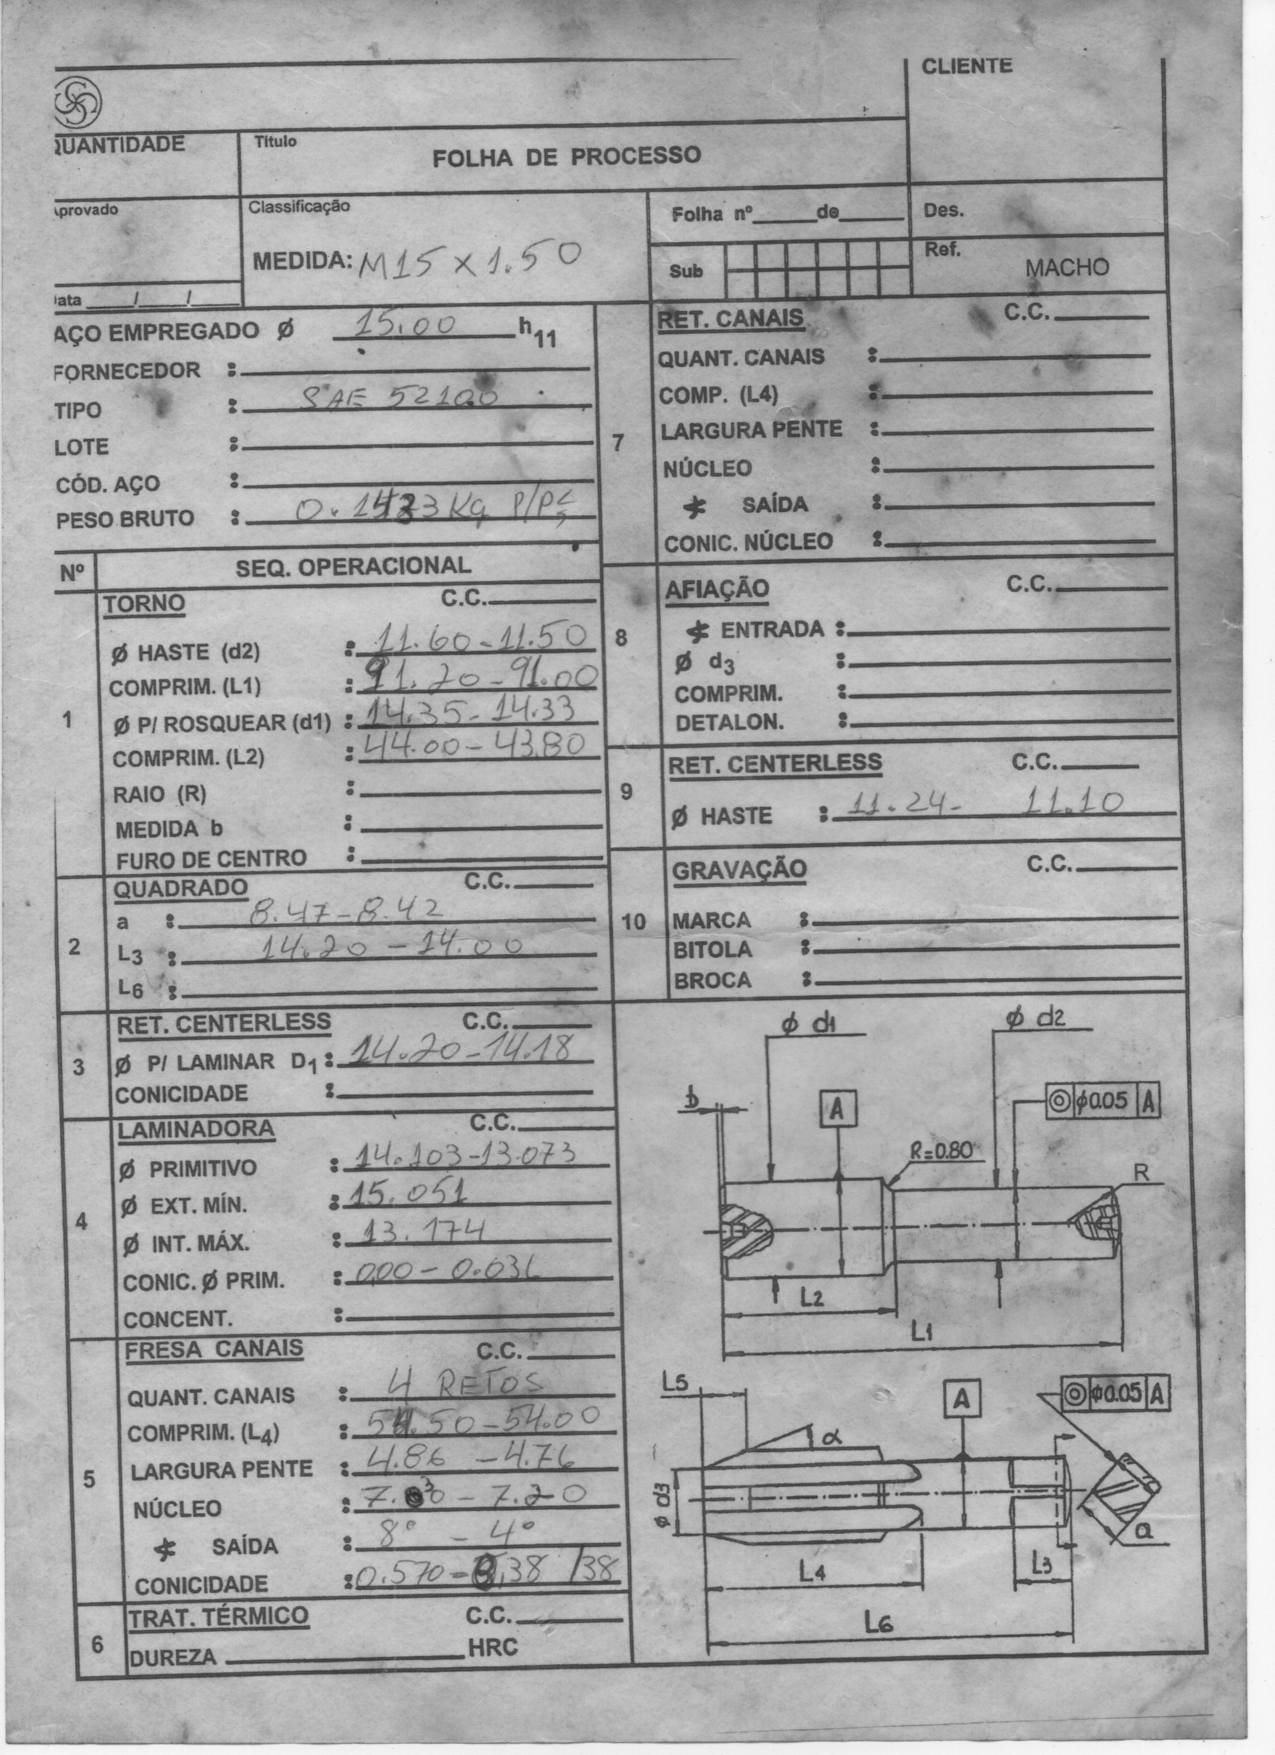 CLIENTE
QUANTIDADE
Título
FOLHA DE PROCESSO
Aprovado
Classificação
MEDIDA: M15 x 1.50
Folha nº______de______
Des.
Sub
Ref.
MACHO
Data ____/____/____
AÇO EMPREGADO Ø 15.00 h11
FORNECEDOR :
TIPO : SAE 52100
LOTE :
CÓD. AÇO :
PESO BRUTO : Kg P/Pç
Nº SEQ. OPERACIONAL
1 TORNO C.C.
Ø HASTE (d2) : 11.60-11.50
COMPRIM. (L1) : 91.20-91.00
Ø P/ ROSQUEAR (d1) : 14.35-14.33
COMPRIM. (L2) : 44.00-43.80
RAIO (R) :
MEDIDA b :
FURO DE CENTRO :
2 QUADRADO C.C.
a : 8.47-8.42
L3 : 14.20-14.00
L6 :
3 RET. CENTERLESS C.C.
Ø P/ LAMINAR D1 : 14.20-14.18
CONICIDADE :
4 LAMINADORA C.C.
Ø PRIMITIVO : 14.103-13.073
Ø EXT. MÍN. : 15.051
Ø INT. MÁX. : 13.174
CONIC. Ø PRIM. :
CONCENT. :
5 FRESA CANAIS C.C.
QUANT. CANAIS : 4 RETOS
COMPRIM. (L4) : 54.50-54.00
LARGURA PENTE : 4.86 - 4.76
NÚCLEO : 7.30 - 7.20
SAÍDA : 8° - 4°
CONICIDADE : 0.570- /38
6 TRAT. TÉRMICO C.C.
DUREZA HRC
7 RET. CANAIS C.C.
QUANT. CANAIS :
COMP. (L4) :
LARGURA PENTE :
NÚCLEO :
SAÍDA :
CONIC. NÚCLEO :
8 AFIAÇÃO C.C.
ENTRADA :
Ø d3 :
COMPRIM. :
DETALON. :
9 RET. CENTERLESS C.C.
Ø HASTE : 11.24- 11.10
10 GRAVAÇÃO C.C.
MARCA :
BITOLA :
BROCA :
Ø d1
Ø d2
b
A
◎ Ø0.05 A
R=0.80
R
L2
L1
L5
A
◎ Ø0.05 A
α
Ø d3
a
L4
L3
L6